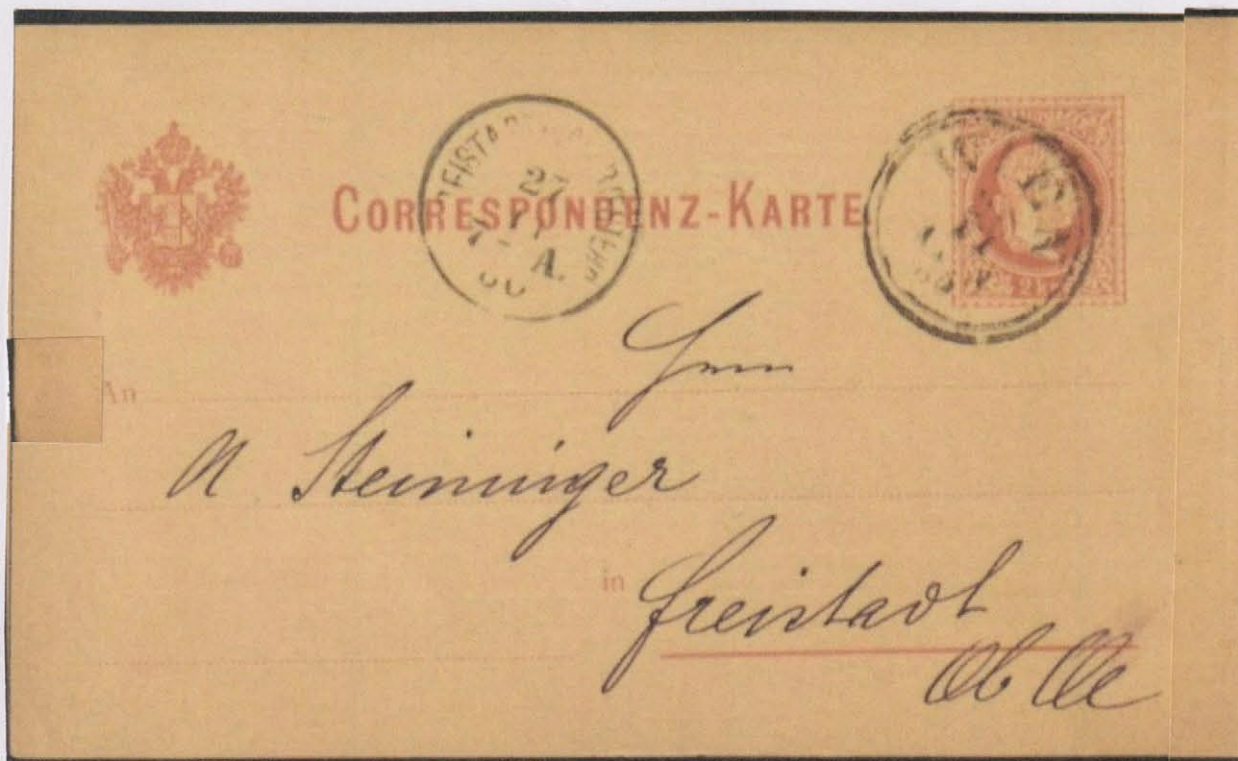 CORRESPONDENZ-KARTE
WIEN
27
7 A.
An
Herrn
A Steininger
in Freistadt
Ob Oe